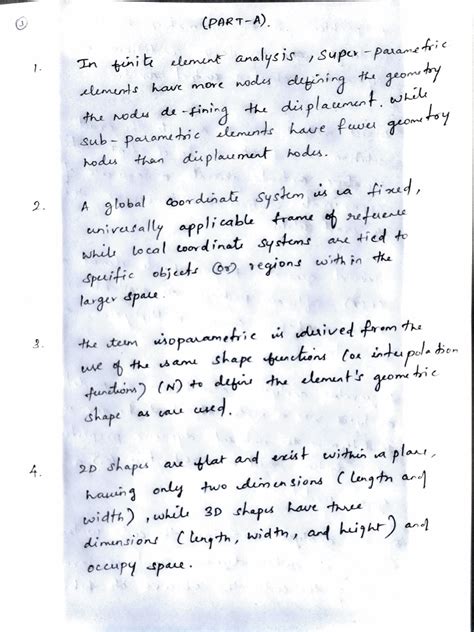 1
(PART-A).
1. In finite element analysis, super-parametric
elements have more nodes defining the geometry
the nodes de-fining the displacement. While
sub-parametric elements have fewer geometry
nodes than displacement nodes.
2. A global coordinate system is a fixed,
universally applicable frame of reference
while local coordinate systems are tied to
specific objects (or) regions within the
larger space.
3. the term isoparametric is derived from the
use of the same shape functions (or interpolation
functions) (N) to define the element's geometric
shape as are used.
4. 2D shapes are flat and exist within a plane,
having only two dimensions (length and
width), while 3D shapes have three
dimensions (length, width, and height) and
occupy space.